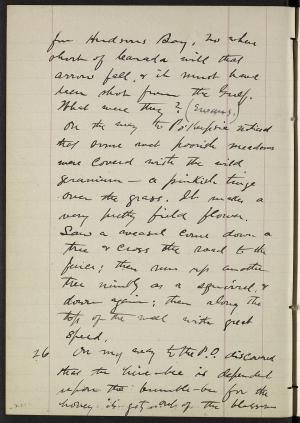 for Hudsons Bay, No where
short of Canada will that
arrow fall, & it must have
been shot from the Gulf.
What were they? (Swans.)
On the way to Po'keepsie noticed
that some wet poorish meadows
were covered with the wild
geranium — a pinkish tinge
over the grass. It makes a
very pretty field flower.
Saw a weasel come down a
tree & cross the road to the
fence; then run up another
tree nimbly as a squirrel, &
down again; then along the
top of the wall with great
speed.
26 On my way to the P.O. discovered
that the hive-bee is dependent
upon the bumble-bee for the
honey it gets out of the blossom